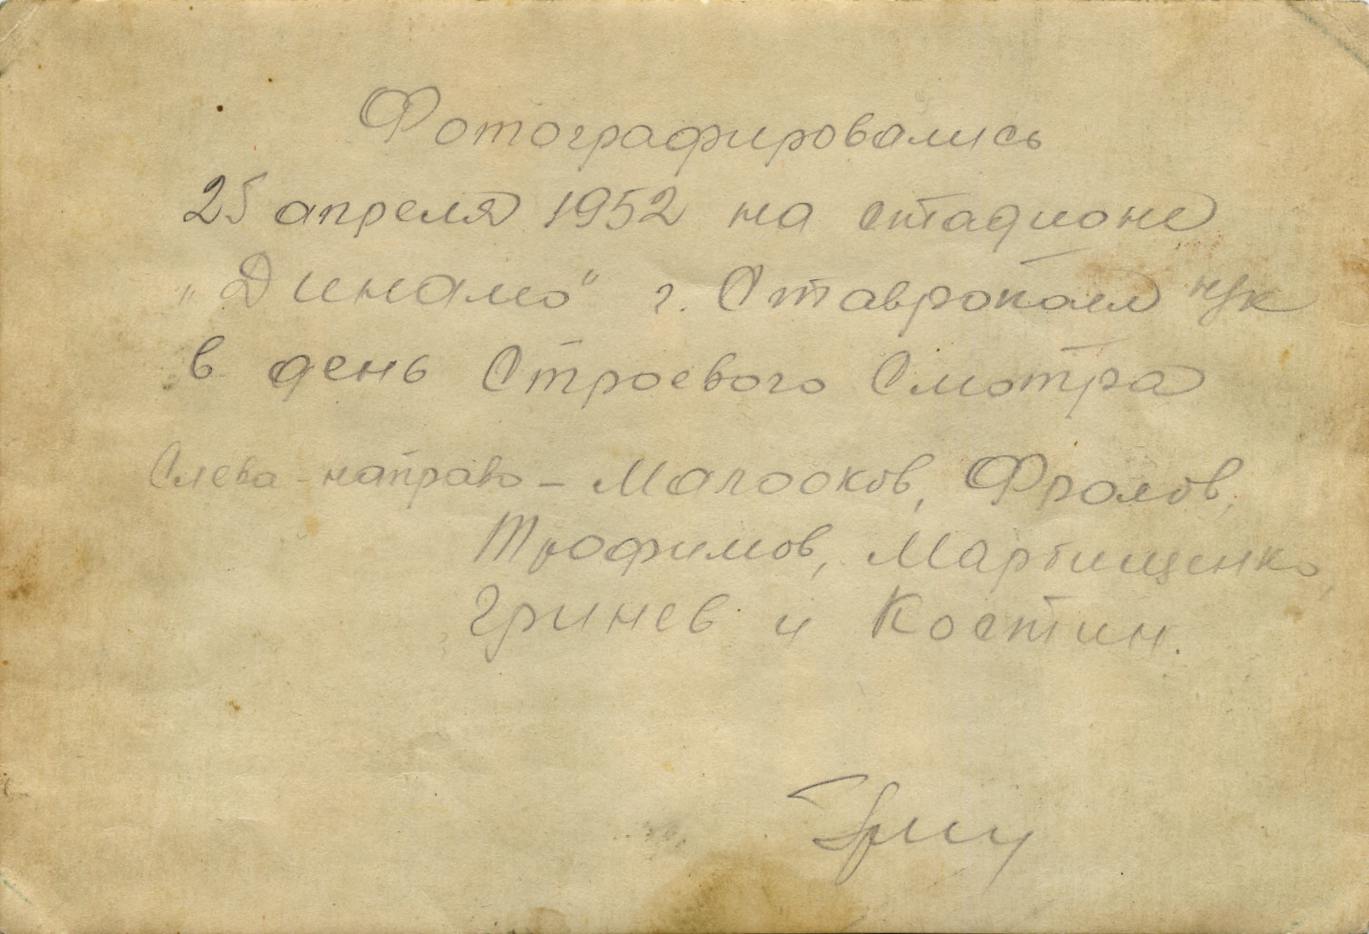 Фотографировались
25 апреля 1952 на стадионе
"Динамо" г. Ставрополя
в день Строевого Смотра
Слева направо – Малооков, Фролов,
Трофимов, Мартищенко,
Гринев и Костин.